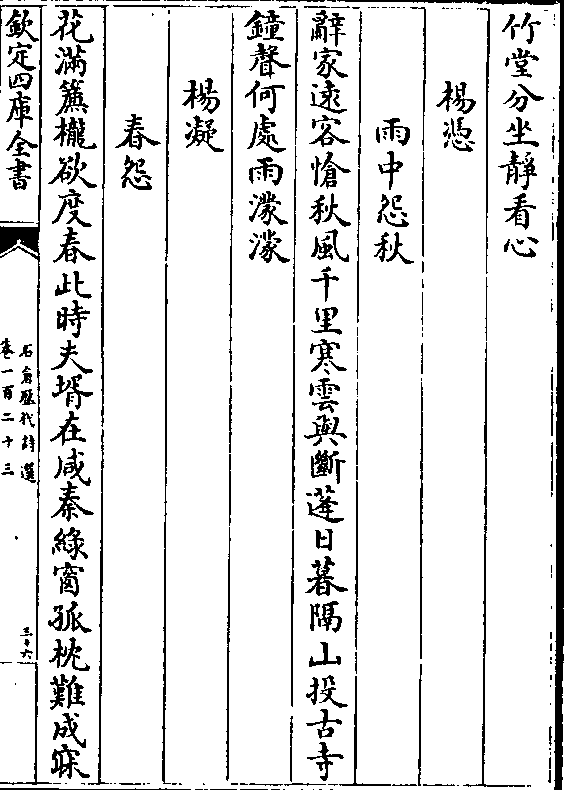 竹堂分坐靜看心
楊憑
雨中怨秋
辭家遠客愴秋風千里寒雲與斷蓬日暮隔山投古寺
鐘聲何處雨濛濛
楊凝
春怨
花滿簾櫳欲度春此時夫壻在咸秦綠窗孤枕難成寐
欽定四庫全書
石倉歷代詩選
卷一百二十三
三十六